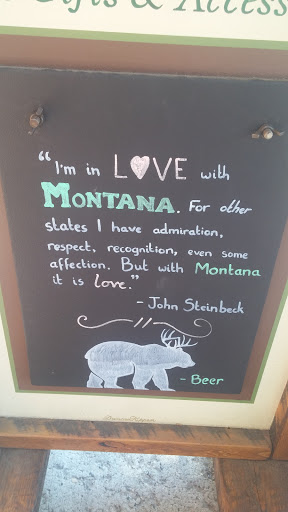 Gifts & Access
"I'm in LOVE with
MONTANA. For other
states I have admiration,
respect, recognition, even some
affection. But with Montana
it is love."
- John Steinbeck
- Beer